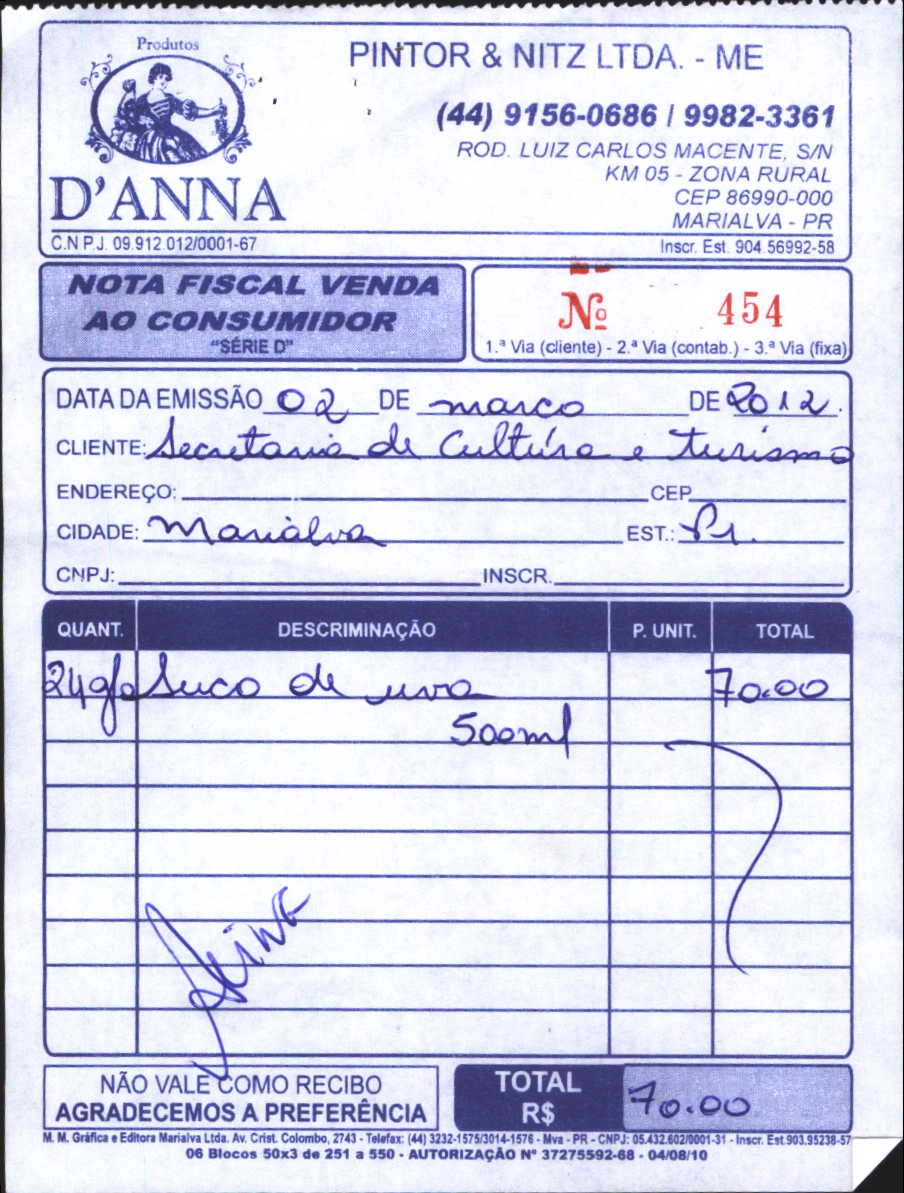 Produtos
D'ANNA
C.N.P.J. 09.912.012/0001-67
PINTOR & NITZ LTDA. - ME
(44) 9156-0686 / 9982-3361
ROD. LUIZ CARLOS MACENTE, S/N
KM 05 - ZONA RURAL
CEP 86990-000
MARIALVA - PR
Inscr. Est. 904.56992-58
NOTA FISCAL VENDA
AO CONSUMIDOR
"SÉRIE D"
Nº 454
1.ª Via (cliente) - 2.ª Via (contab.) - 3.ª Via (fixa)
DATA DA EMISSÃO 02 DE março DE 2012.
CLIENTE: Secretaria de Cultura e turismo
ENDEREÇO: CEP
CIDADE: Marialva EST.: Pr.
CNPJ: INSCR.
QUANT. DESCRIMINAÇÃO P. UNIT. TOTAL
24 Suco de uva 70.00
500ml
NÃO VALE COMO RECIBO
AGRADECEMOS A PREFERÊNCIA
TOTAL
R$ 70.00
M. M. Gráfica e Editora Marialva Ltda. Av. Crist. Colombo, 2743 - Telefax: (44) 3232-1575/3014-1576 - Mva - PR - CNPJ: 05.432.602/0001-31 - Inscr. Est.903.95238-57
06 Blocos 50x3 de 251 a 550 - AUTORIZAÇÃO Nº 37275592-68 - 04/08/10